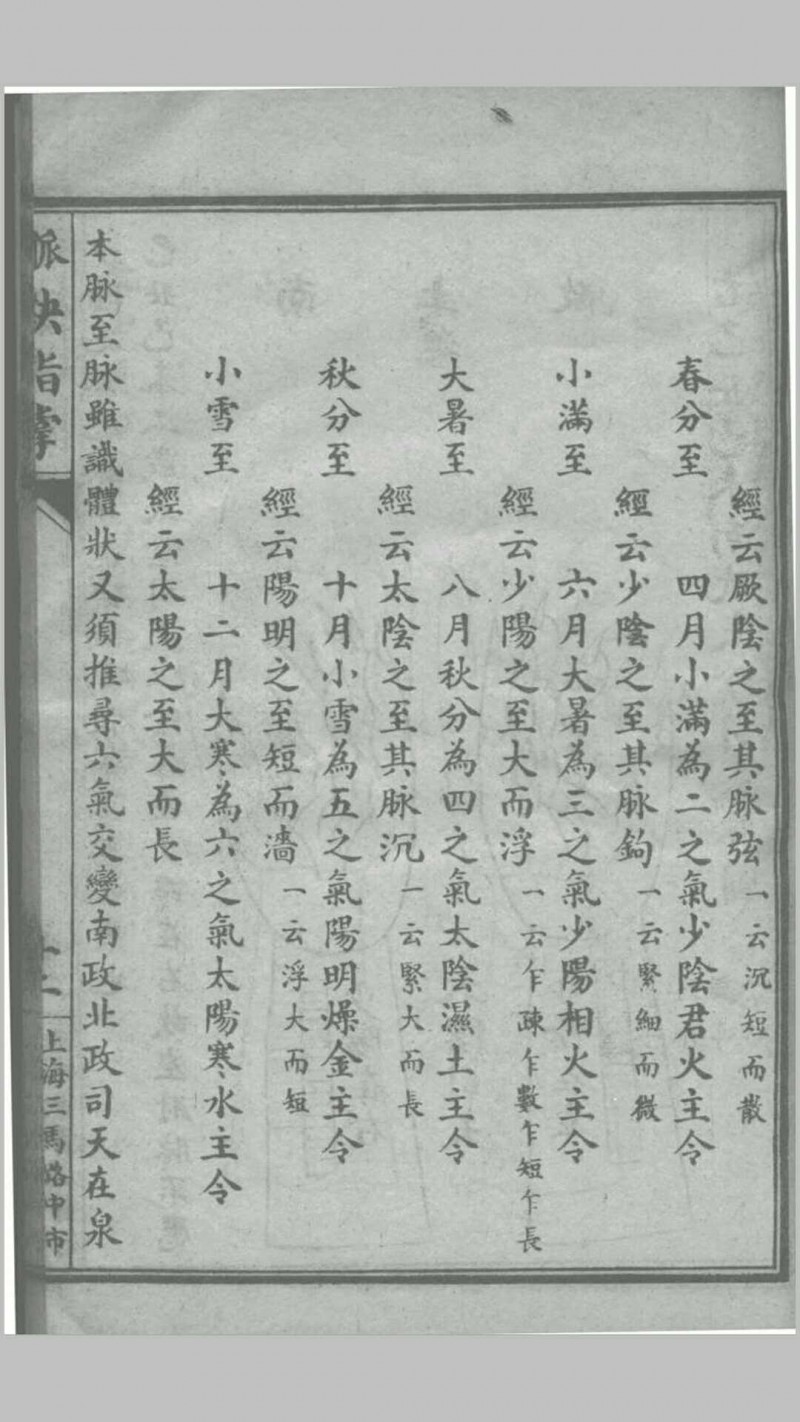 經云厥陰之至其脉弦一云沉短而散
春分至 四月小滿為二之氣少陰君火主令
經云少陰之至其脉鉤一云緊細而微
小滿至 六月大暑為三之氣少陽相火主令
經云少陽之至大而浮一云乍疎乍數乍短乍長
大暑至 八月秋分為四之氣太陰濕土主令
經云太陰之至其脉沉一云緊大而長
秋分至 十月小雪為五之氣陽明燥金主令
經云陽明之至短而濇一云浮大而短
小雪至 十二月大寒為六之氣太陽寒水主令
經云太陽之至大而長
本脉至脉雖識體狀又須推尋六氣交變南政北政司天在泉
脈訣指掌
上海三馬路中市